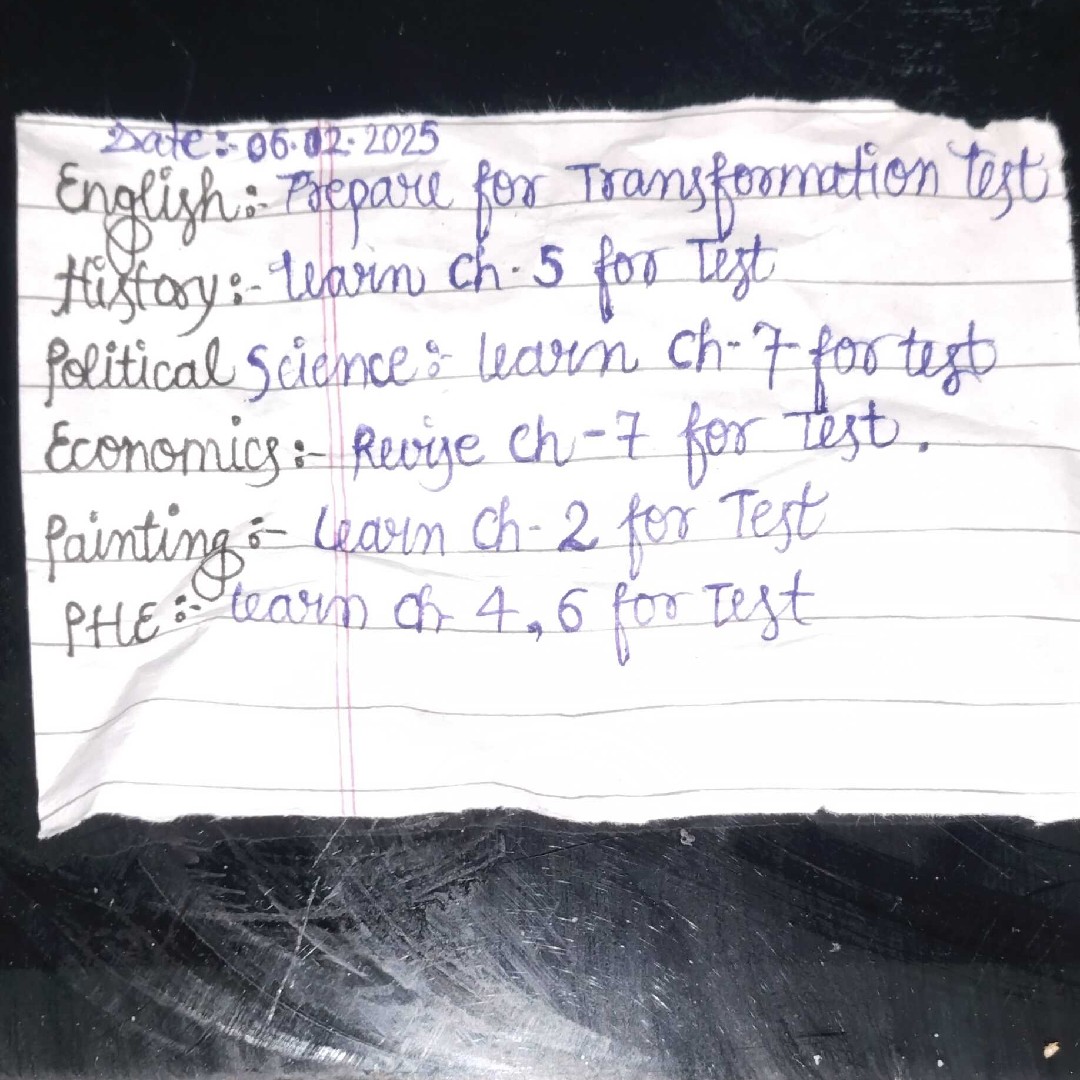 Date:- 06.02.2025
English:- Prepare for Transformation test
History:- learn ch-5 for Test
Political Science:- learn Ch-7 for test
Economics:- Revise Ch-7 for Test.
Painting:- learn Ch-2 for Test
PHE:- learn ch 4,6 for Test